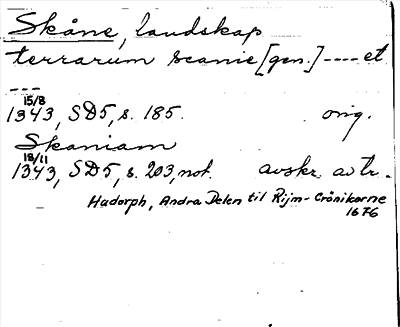 Skåne, landskap
terrarum scanie [gen.] ---- et
---
15/8
1343, SD5, s. 185. orig.
Skaniam
18/11
1343, SD5, s. 203, not. avskr. av tr.
Hadorph, Andra Delen til Rijm-Crönikorne
1676